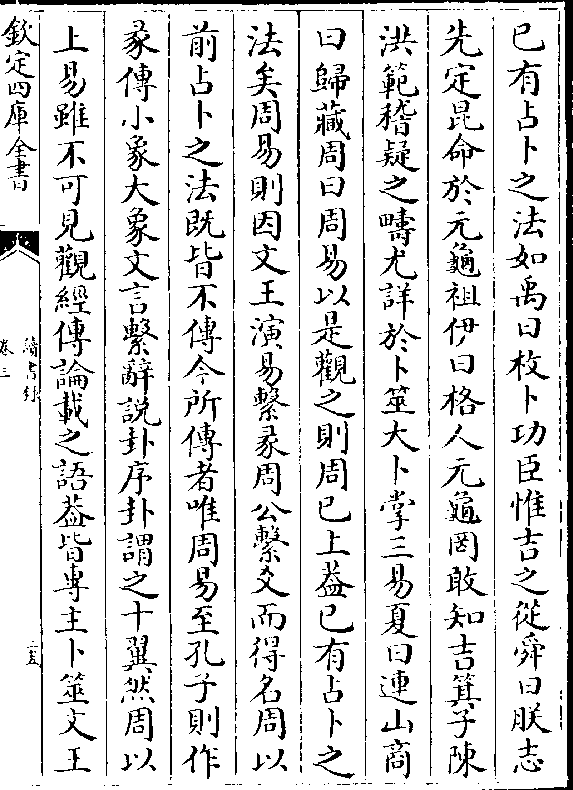 已有占卜之法如禹曰枚卜功臣惟吉之從舜曰朕志
先定昆命於元龜祖伊曰格人元龜罔敢知吉箕子陳
洪範稽疑之疇尤詳於卜筮大卜掌三易夏曰連山商
曰歸藏周曰周易以是觀之則周已上葢已有占卜之
法矣周易則因文王演易繫彖周公繫爻而得名周以
前占卜之法既皆不傳今所傳者唯周易至孔子則作
彖傳小象大象文言繫辭說卦序卦謂之十翼然周以
上易雖不可見觀經傳論載之語葢皆專主卜筮文王
欽定四庫全書
讀書録
卷三
三五